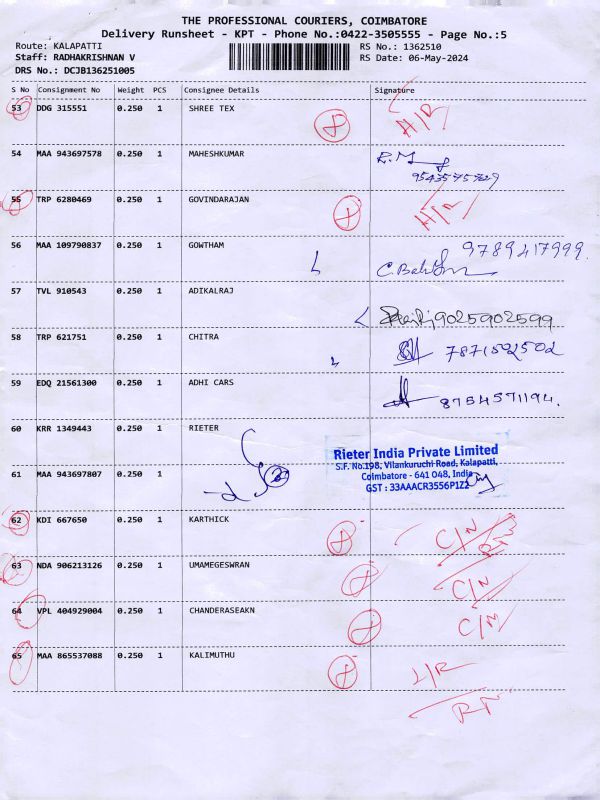 THE PROFESSIONAL COURIERS, COIMBATORE
Delivery Runsheet - KPT - Phone No.:0422-3505555 - Page No.:5
Route: KALAPATTI RS No.: 1362510
Staff: RADHAKRISHNAN V RS Date: 06-May-2024
DRS No.: DCJB136251005
S No Consignment No Weight PCS Consignee Details Signature
53 DDG 315551 0.250 1 SHREE TEX H/R
54 MAA 943697578 0.250 1 MAHESHKUMAR R.M
9543575729
55 TRP 6280469 0.250 1 GOVINDARAJAN H/R
56 MAA 109790837 0.250 1 GOWTHAM 9789417999.
57 TVL 910543 0.250 1 ADIKALRAJ 9025902599
58 TRP 621751 0.250 1 CHITRA 7871502502
59 EDQ 21561300 0.250 1 ADHI CARS 8754571194.
60 KRR 1349443 0.250 1 RIETER
Rieter India Private Limited
S.F. No.198, Vilankuruchi Road, Kalapatti,
61 MAA 943697807 0.250 1 Coimbatore - 641 048, India
GST : 33AAACR3556P1Z2
62 KDI 667650 0.250 1 KARTHICK C/N
RN
63 NDA 906213126 0.250 1 UMAMEGESWRAN C/N
64 VPL 404929004 0.250 1 CHANDERASEAKN C/N
65 MAA 865537088 0.250 1 KALIMUTHU L/R
RN